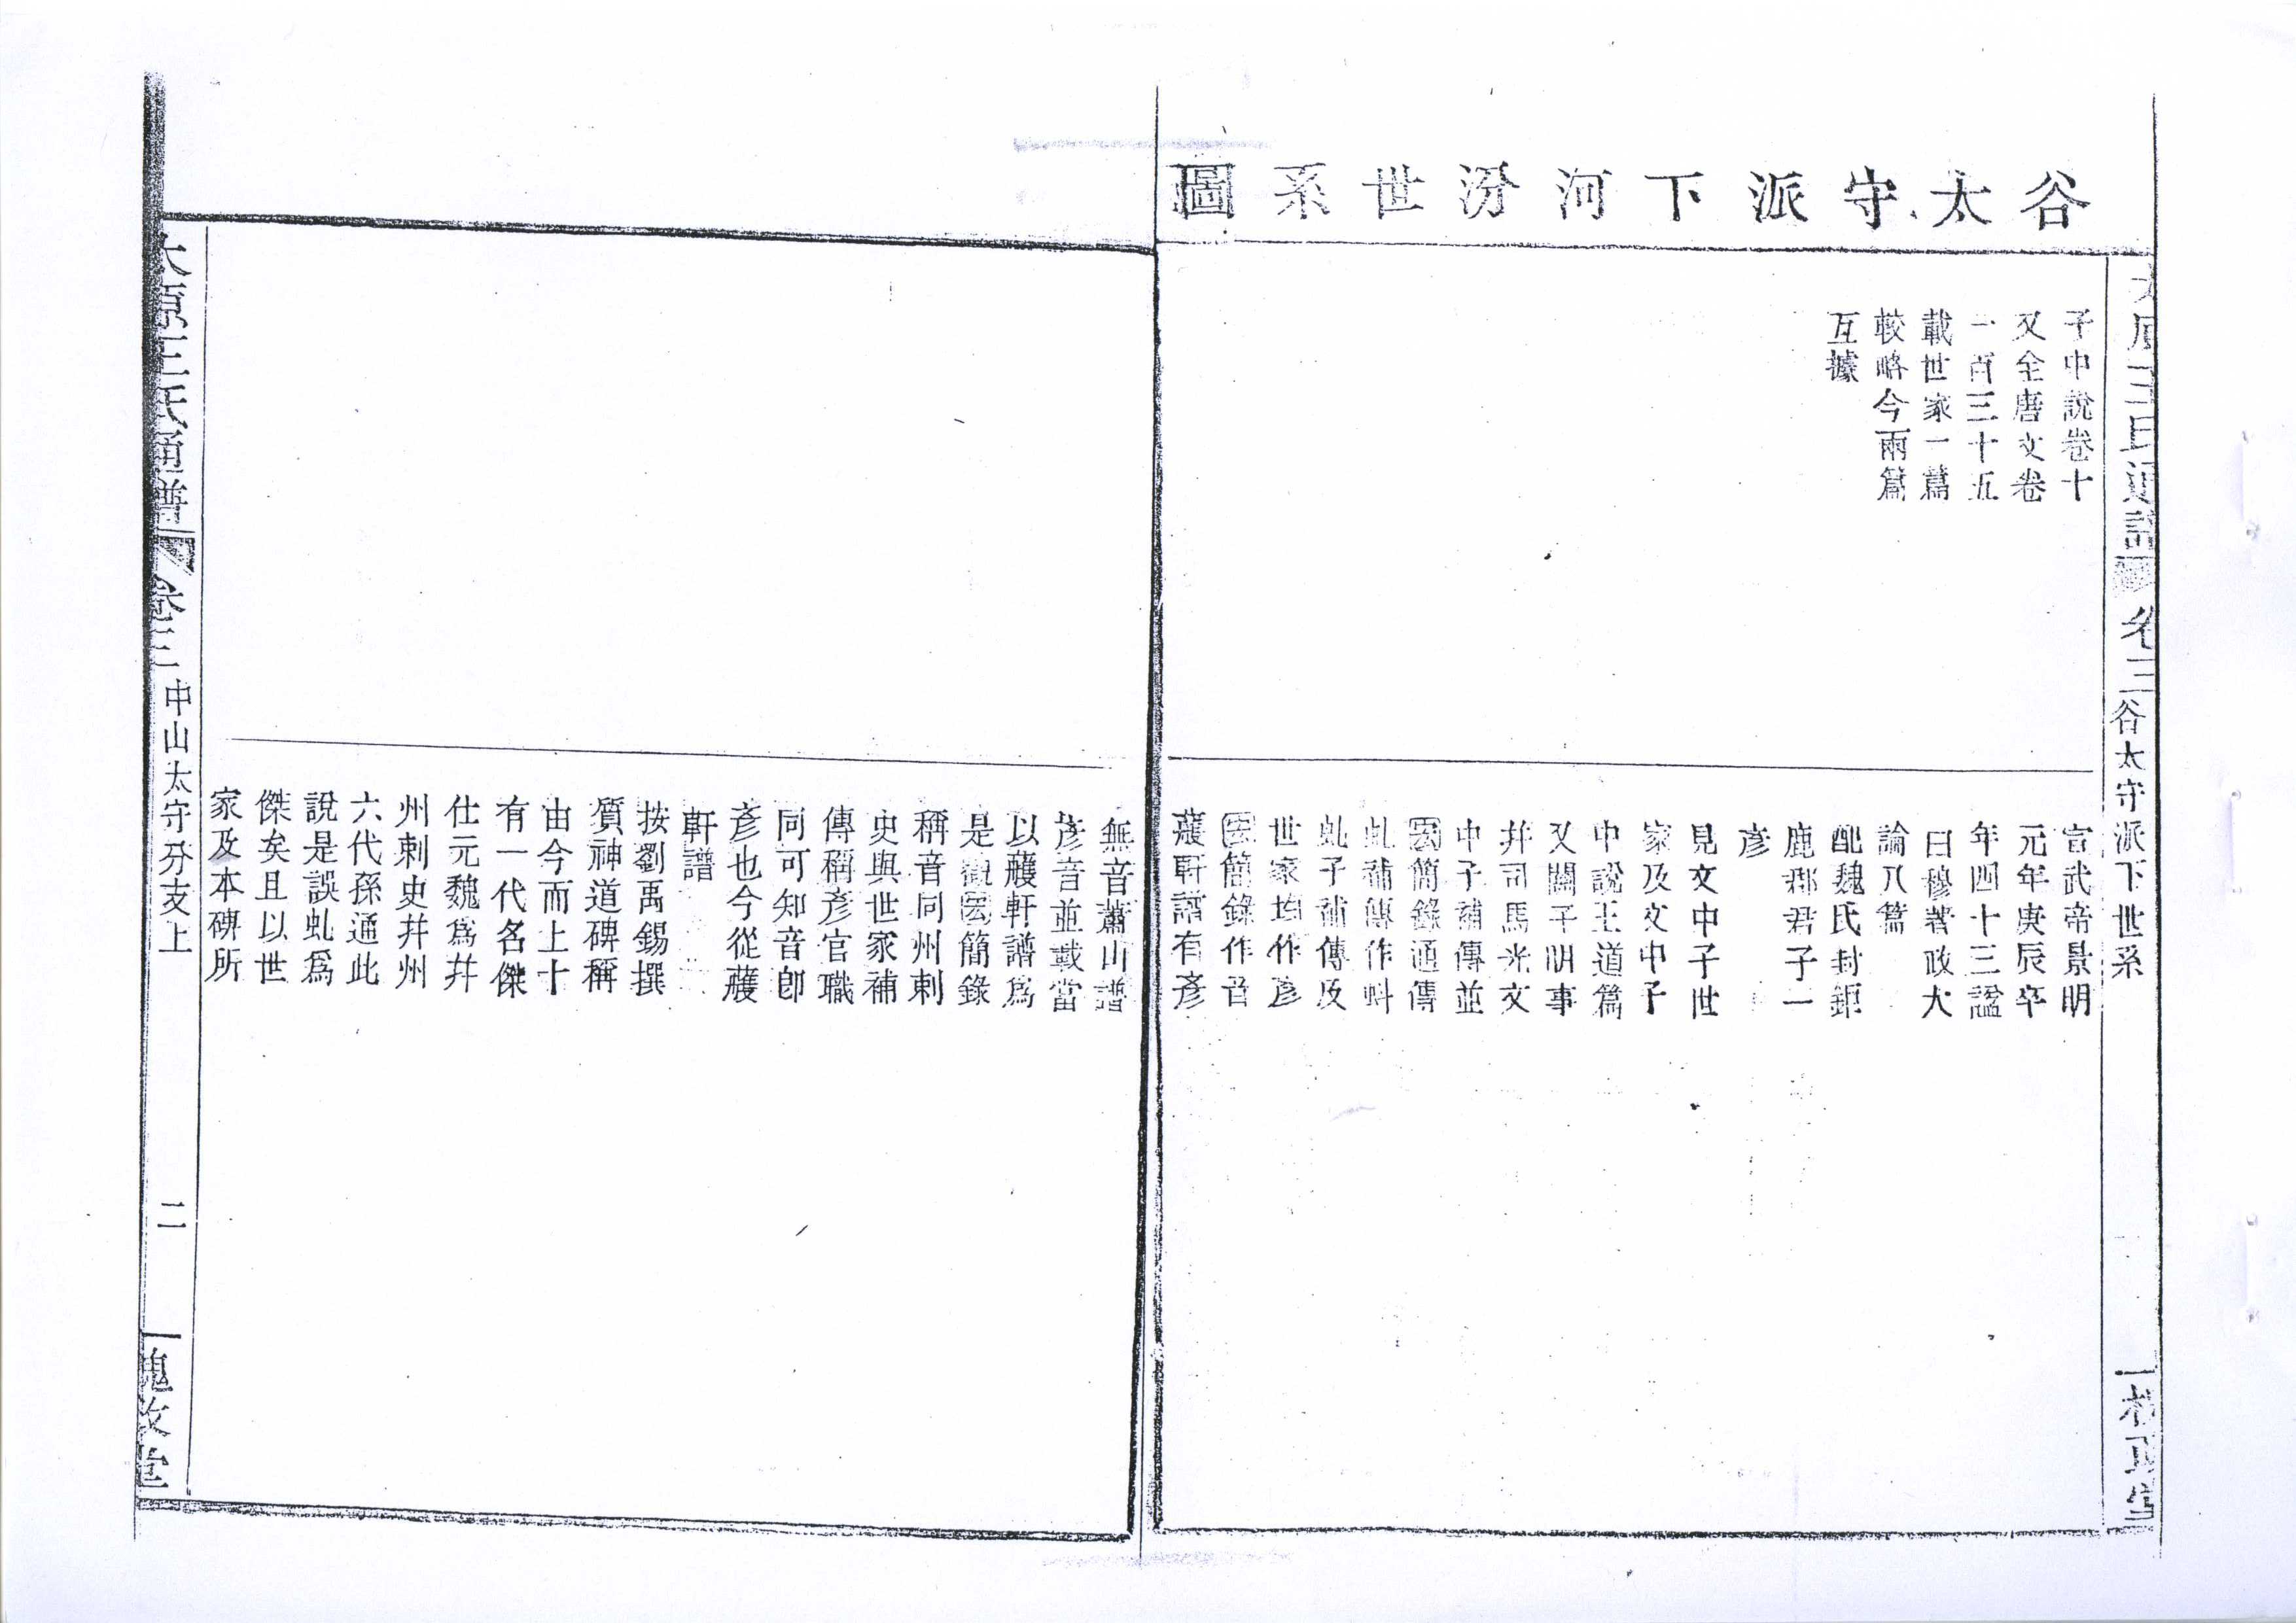 谷太守派下河汾世系圖
太原王氏通譜 卷三 谷太守派下世系
子中說卷十
又全唐文卷
一百三十五
載世家一篇
較略今兩篇
互據
宣武帝景明
元年庚辰卒
年四十三諡
曰穆著政大
論八篇
配魏氏封鉅
鹿郡君子一
彥
見文中子世
家及文中子
中說王道篇
又關子明事
并司馬光文
中子補傳並
宏簡錄通傳
虬補傳作蚪
虬子補傳及
世家均作彥
宏簡錄作音
蘐軒譜有彥
無音蕭山譜
彥音並載當
以蘐軒譜爲
是觀宏簡錄
稱音同州刺
史與世家補
傳稱彥官職
同可知音卽
彥也今從蘐
軒譜
按劉禹錫撰
質神道碑稱
由今而上十
有一代名傑
仕元魏爲幷
州刺史幷州
六代孫通此
說是誤虬爲
傑矣且以世
家及本碑所
太原王氏通譜 卷三 中山太守分支上 二 槐政堂